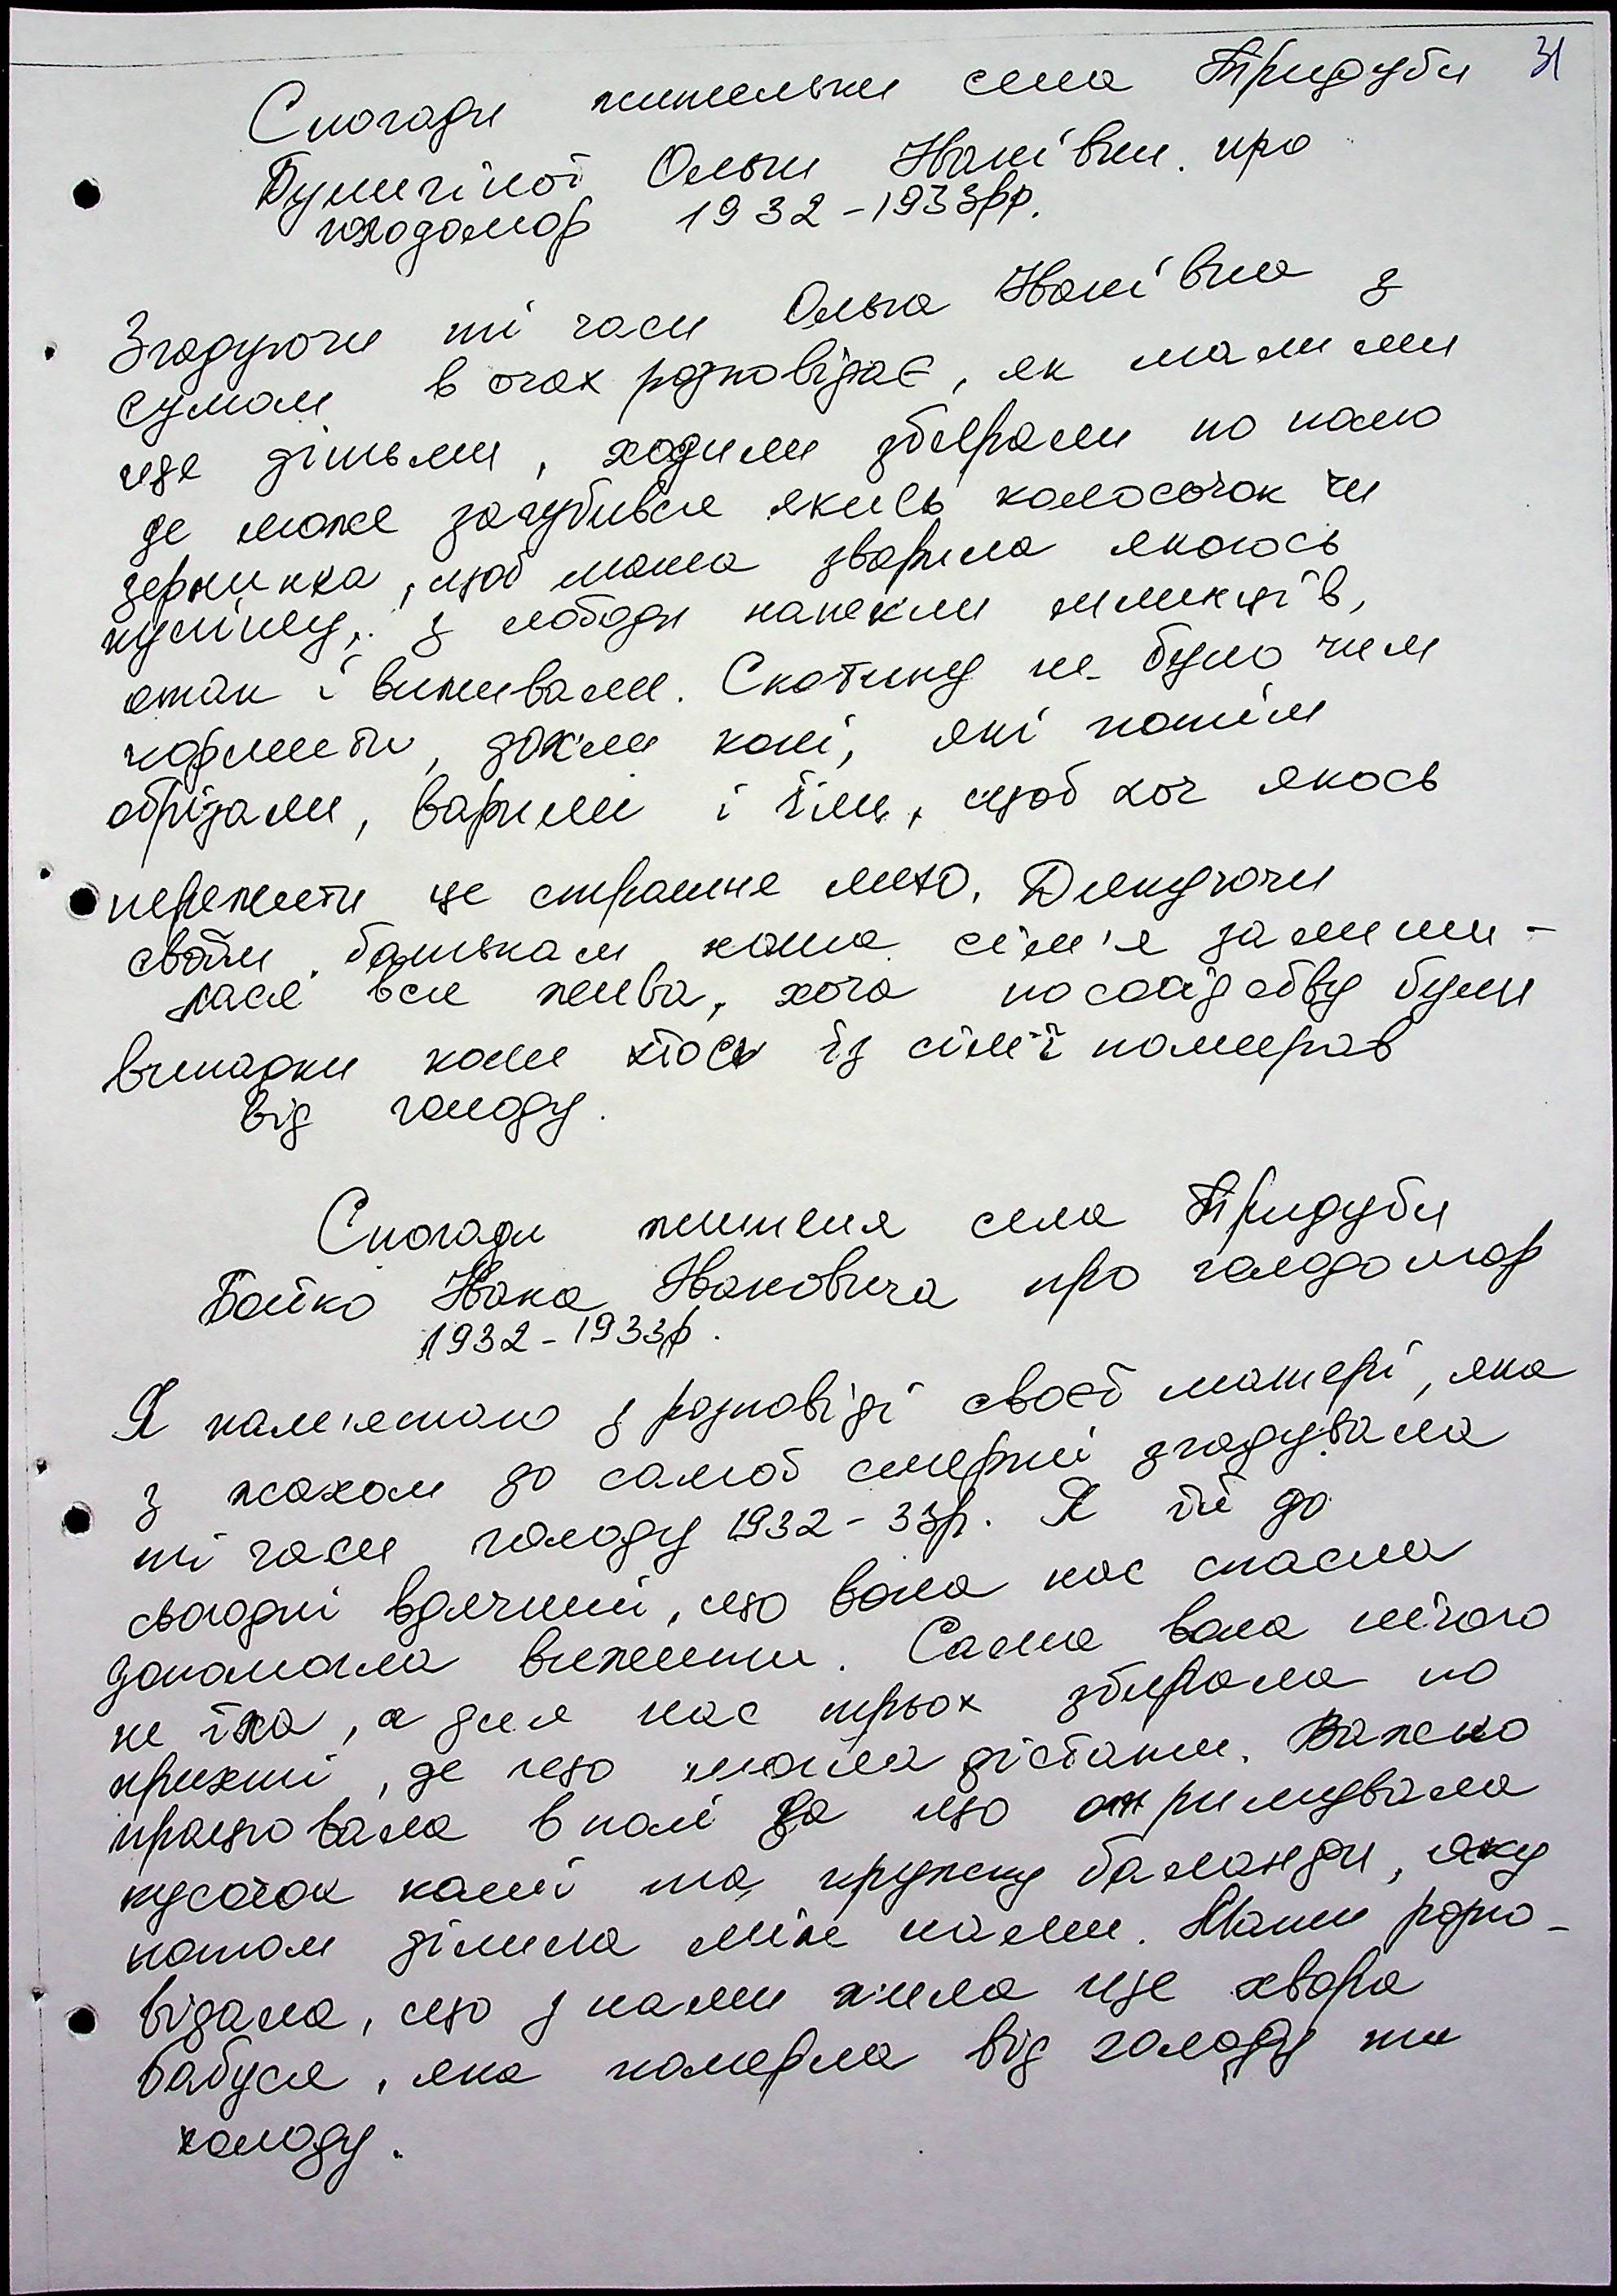 31
Спогади жительки села Тридуби
Булигіної Ольги Іванівни про
голодомор 1932-1933рр.
Згадуючи ті часи Ольга Іванівна з
сумом в очах розповідає, як малими
ще дітьми, ходили збирали по полю
де може загубився якийсь колосочок чи
зернинка, щоб мама зварила якогось
кулішу, з лободи напекли млинців,
отак і виживали. Скотину не було чим
кормити, дохли коні, які потім
обрізали, варили і їли, щоб хоч якось
пережити це страшне лихо. Дякуючи
своїм батькам наша сім'я залиши-
лася вся жива, хоча по сосідству були
випадки коли хтось із сім'ї помирав
від голоду.
Спогади жителя села Тридуби
Бойко Івана Івановича про голодомор
1932-1933р.
Я пам'ятаю з розповіді своєї матері, яка
з жахом до самої смерті згадувала
ті часи голоду 1932-33р. Я їй до
сьогодні вдячний, що вона нас спасла
допомогла вижити. Сама вона нічого
не їла, а для нас трьох збирала по
крихті, де що могла дістати. Важко
працювала в полі за що отримувала
кусочок каші та кружку баланди, яку
потом ділила між нами. Мати розпо-
відала, що з нами жила ще хвора
бабуся, яка померла від голоду та
холоду.